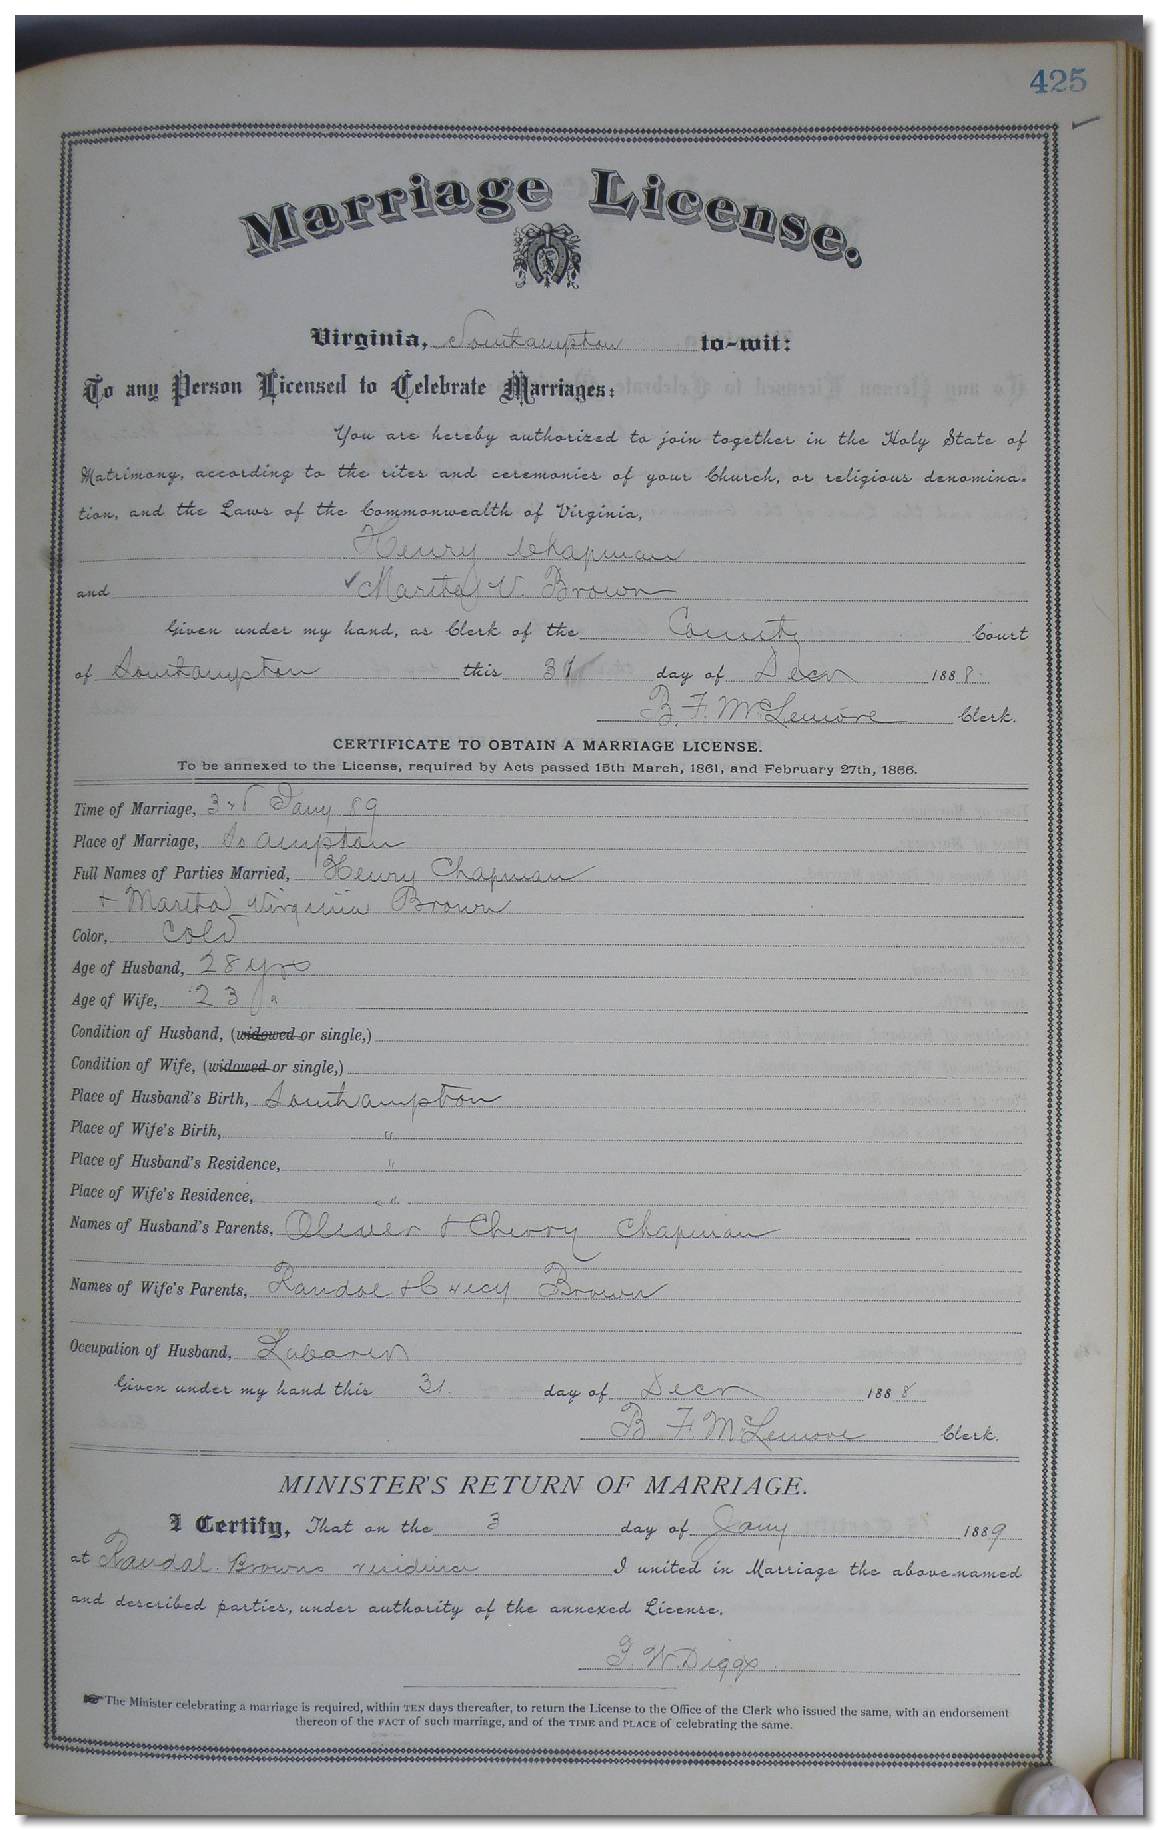 425
Marriage License.
Virginia, Southampton to-wit:
To any Person Licensed to Celebrate Marriages:
You are hereby authorized to join together in the Holy State of
Matrimony, according to the rites and ceremonies of your Church, or religious denomina-
tion, and the Laws of the Commonwealth of Virginia,
Henry Chapman
and ✓ Martha V. Brown
Given under my hand, as Clerk of the County Court
of Southampton this 31 day of Decr 1888.
B. F. McLemore Clerk.
CERTIFICATE TO OBTAIN A MARRIAGE LICENSE.
To be annexed to the License, required by Acts passed 15th March, 1861, and February 27th, 1866.
Time of Marriage, 3rd Jany 89
Place of Marriage, So ampton
Full Names of Parties Married, Henry Chapman
+ Martha Virginia Brown
Color, Cold
Age of Husband, 28 yrs
Age of Wife, 23 "
Condition of Husband, (widowed or single,)
Condition of Wife, (widowed or single,)
Place of Husband's Birth, Southampton
Place of Wife's Birth, "
Place of Husband's Residence, "
Place of Wife's Residence, "
Names of Husband's Parents, Oliver + Cherry Chapman
Names of Wife's Parents, Randal + Brown
Occupation of Husband, Laborer
Given under my hand this 31. day of Decr 1888
B F McLemore Clerk.
MINISTER'S RETURN OF MARRIAGE.
I Certify, That on the 3 day of Jany 1889
at Randal Browns residence I united in Marriage the above-named
and described parties, under authority of the annexed License.
G. W. Diggs
☞ The Minister celebrating a marriage is required, within TEN days thereafter, to return the License to the Office of the Clerk who issued the same, with an endorsement
thereon of the FACT of such marriage, and of the TIME and PLACE of celebrating the same.